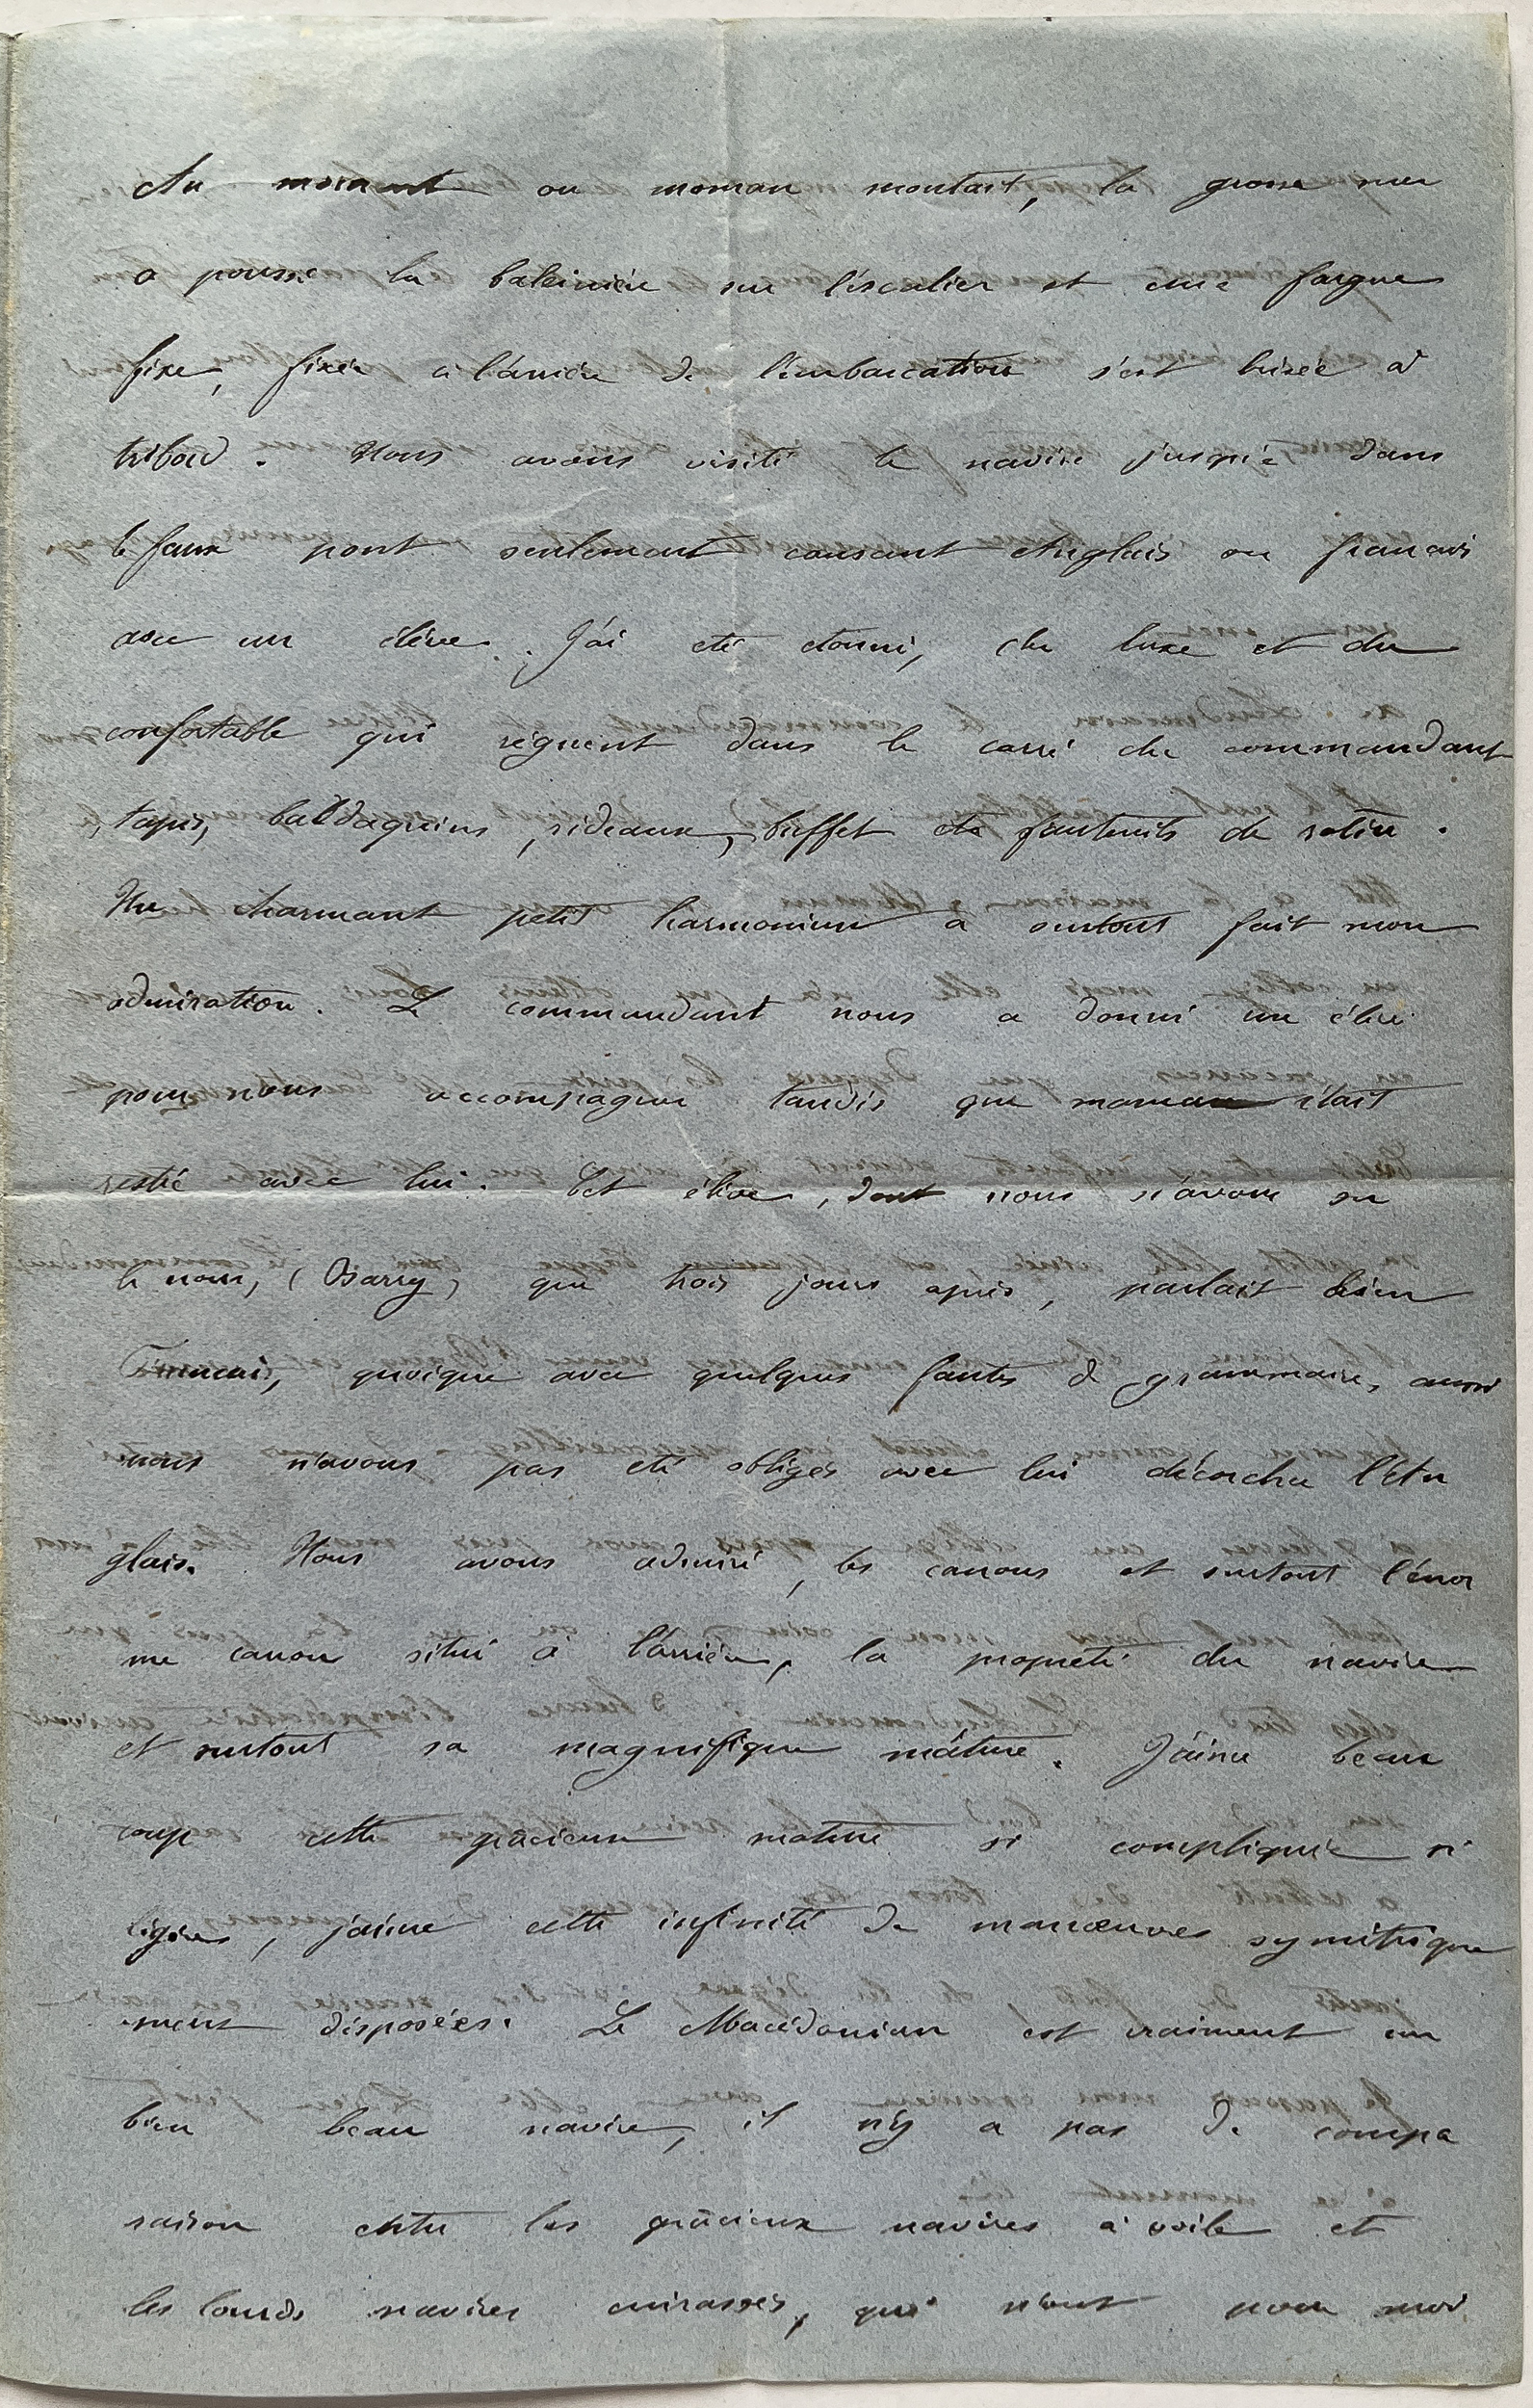 Au moment ou maman montait, la grosse mer
a poussé la baleinière sur l'éscalier et une fargue
fixe, fixée à l'arrière de l'embarcation s'est brisée à
tribord. Nous avons visité, le navire jusqu'à dans
le faux pont seulement causant Anglais ou francais
avec un élève. J'ai eté etonné, du luxe et du
confortable qui règnent dans le carré du commandant
, tapis, baldaquins, rideaux, buffet et fauteuils de rotin.
Un charmant petit harmonium a surtout fait mon
admiration. Le commandant nous a donné un élève
pour nous accompagner tandis que maman était
restée avec lui. Cet élève, dont nous n'avons su
le nom, (Barry) que trois jours après, parlait bien
Francais, quoique avec quelques fautes de grammaire, aussi
nous n'avons pas eté obligés avec lui décorcher l'An
glais. Nous avons admiré, les canons et surtout l'énor
me canon situé à l'arrière, la propreté du navire
et surtout sa magnifique mâture. J'aime beau
coup cette grâcieuse mature si compliquée si
légère, j'aime cette infinité de manœuvres symétrique
ment disposées. Le Macédonian est vraiment un
bien beau navire, il n'y a pas de compa
raison entre les grâcieux navires à voile et
les lourds navires cuirassés, qui n'ont pour moi